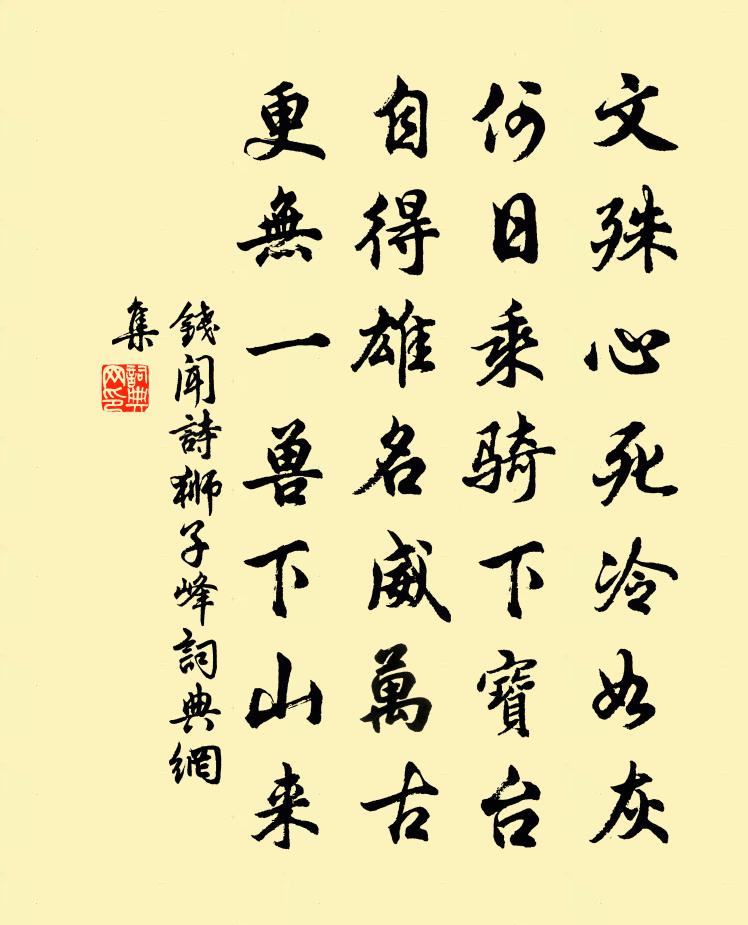 文殊心死冷如灰
何日乘骑下寶台
自得雄名威萬古
更無一兽下山来
錢聞詩獅子峰詞典網
集
詞典
网印